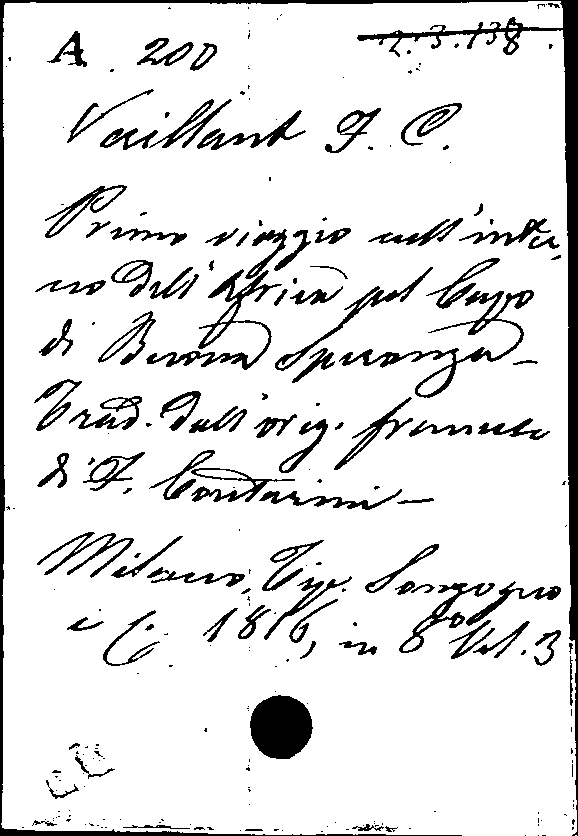 A. 200 2.3.138.
Vaillant F. C.
Primo viaggio nell'inter-
no dell'Africa pel Cappo
di Buona Speranza -
Trad. dall'orig. francese
di F. Contarini -
Milano, Tip. Sonzogno
e C. 1816, in 8º Vol. 3